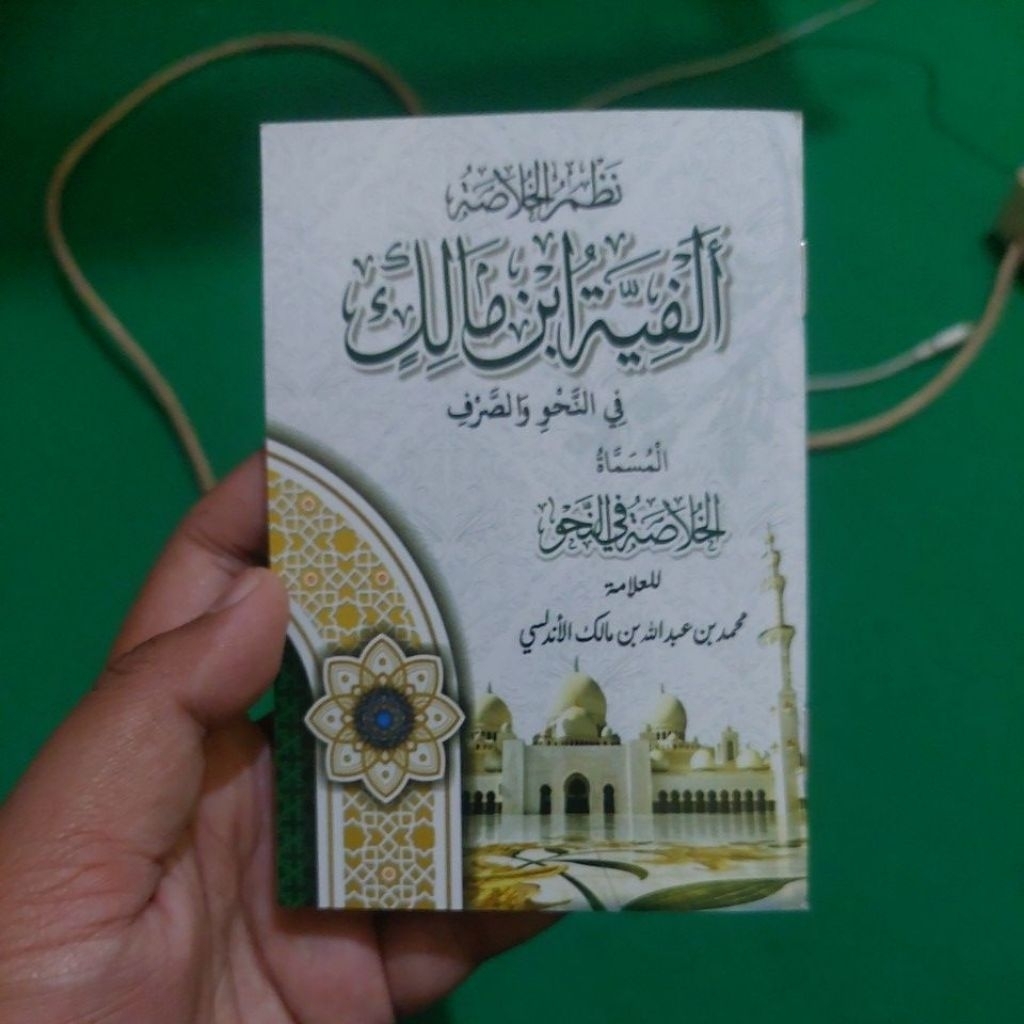 نَظْمُ الخُلَاصَةُ
أَلْفِيَّةُ ابْنِ مَالِكٍ
فِي النَّحْوِ وَالصَّرْفِ
الْمُسَمَّاةُ
الخُلَاصَةُ فِي النَّحْوِ
للعلامة
محمد بن عبد الله بن مالك الأندلسي